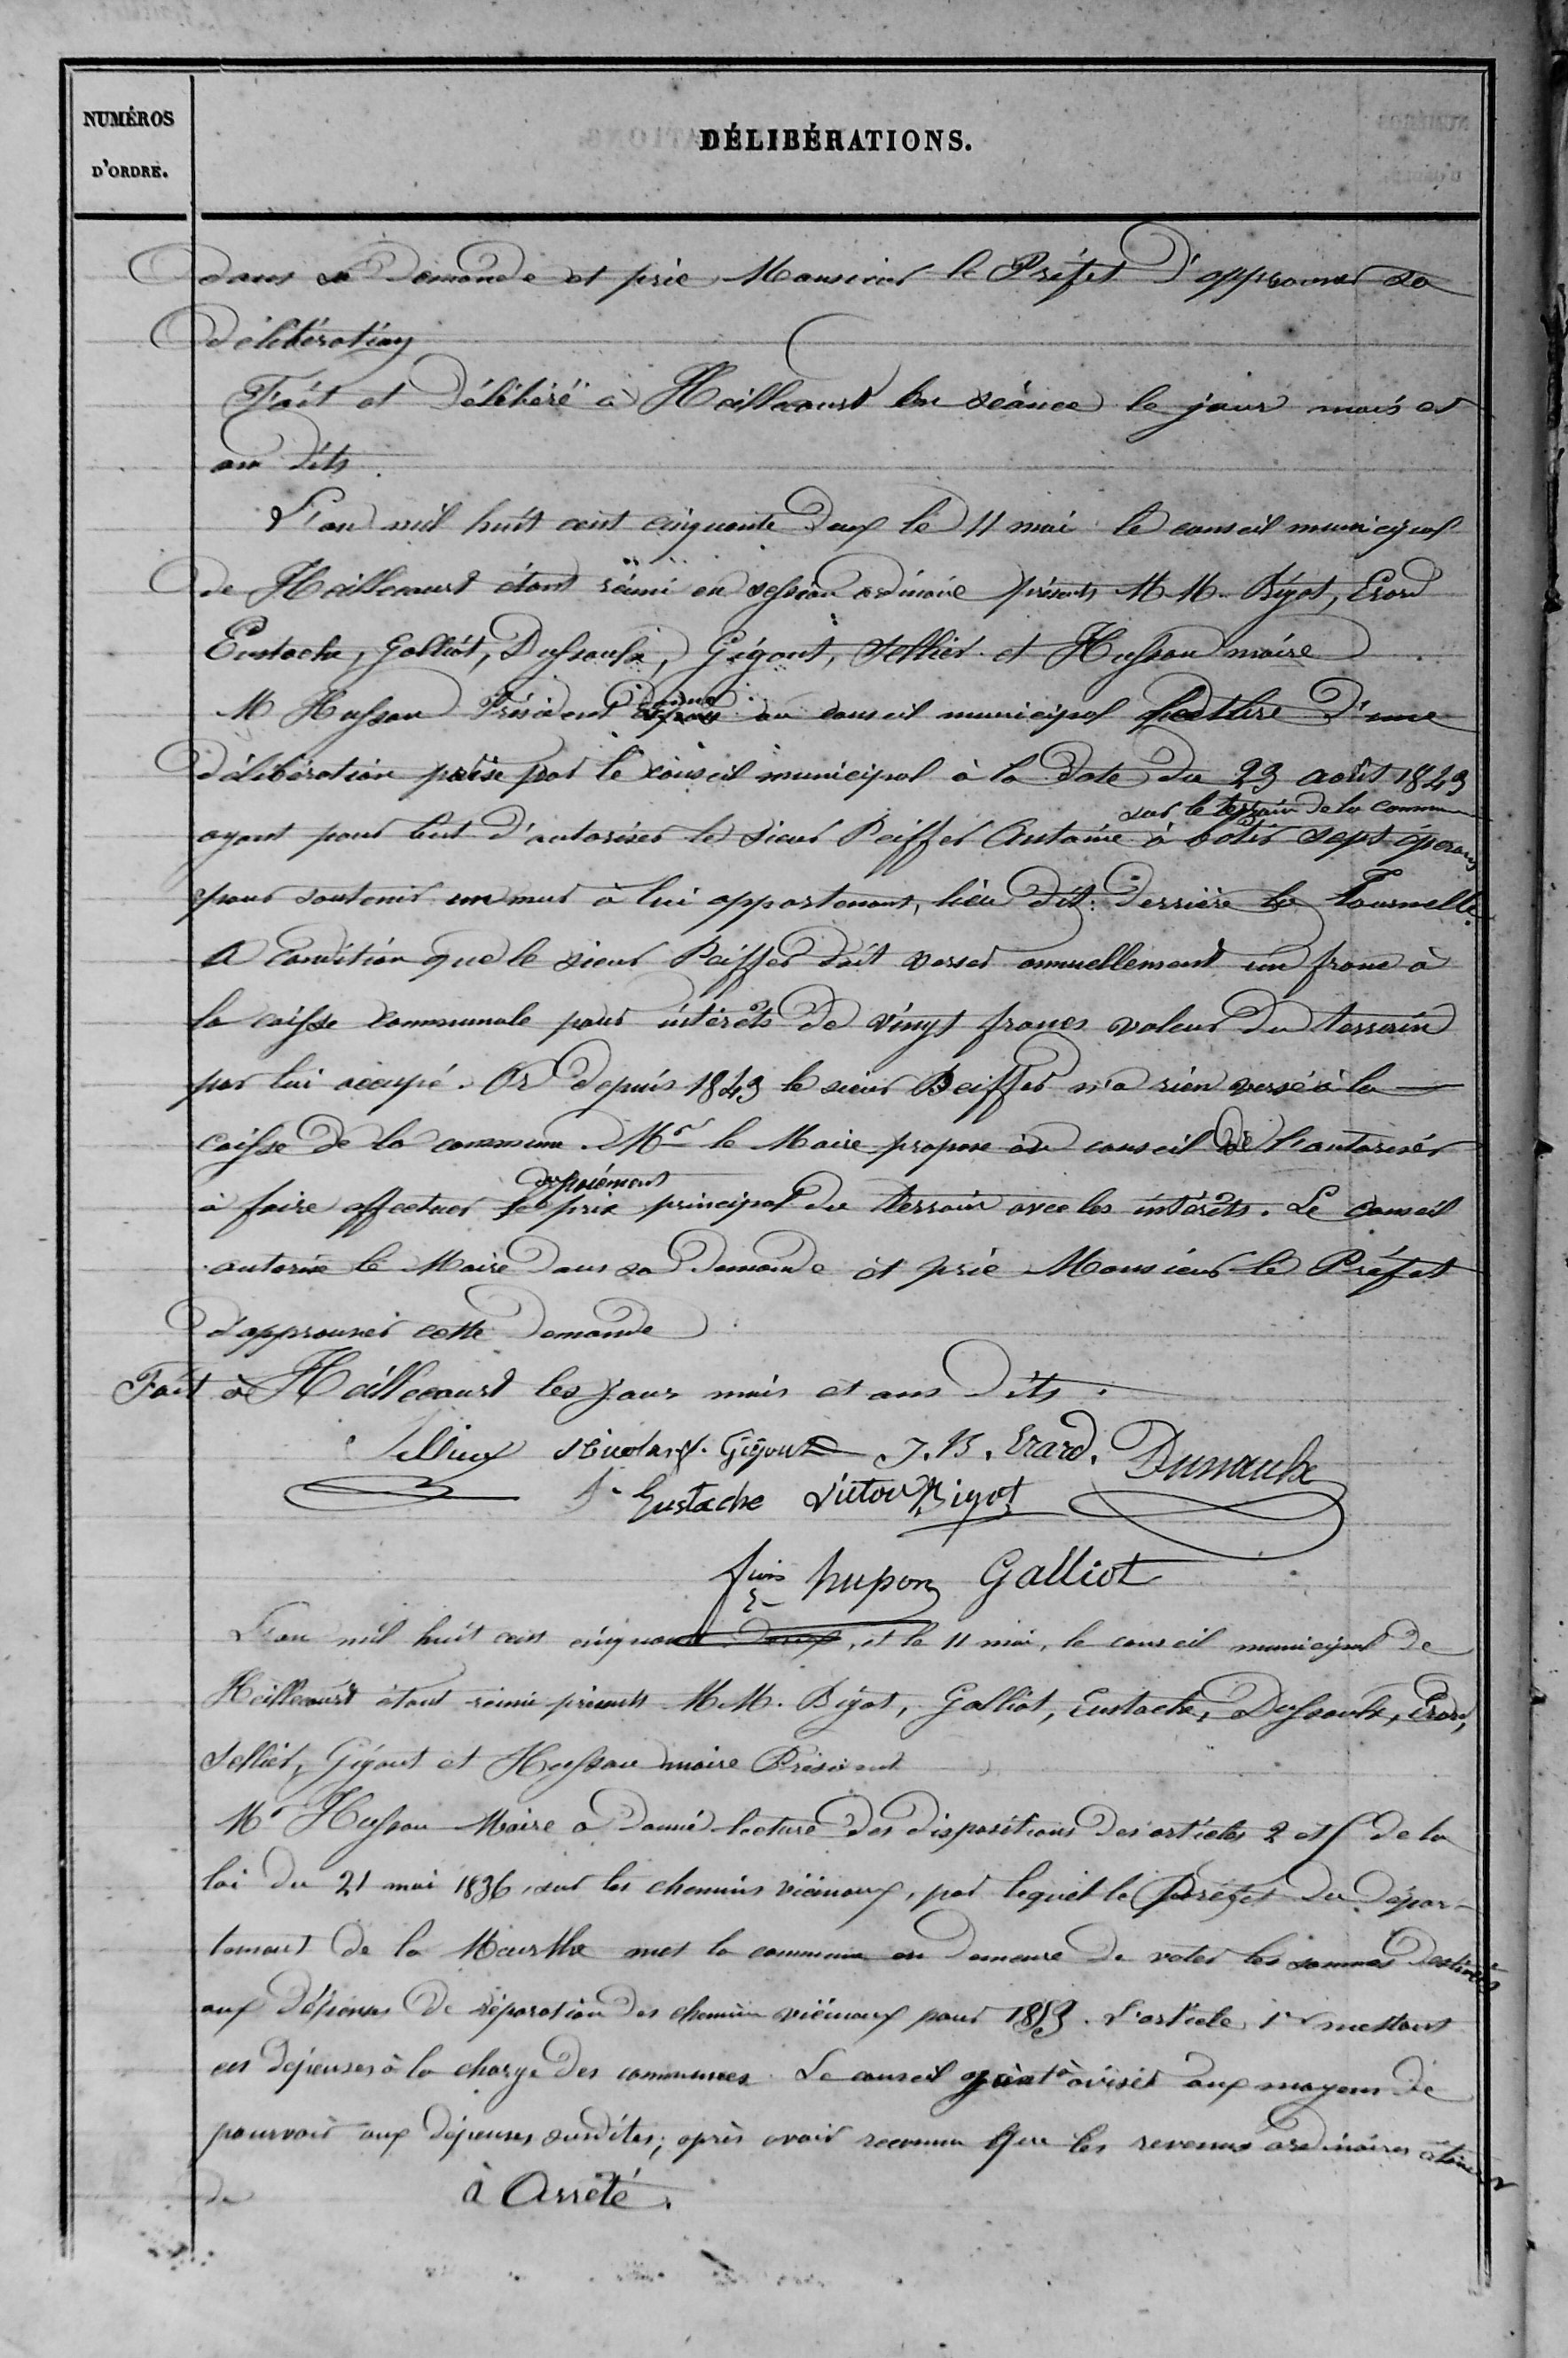 NUMÉROS
D'ORDRE.
DÉLIBÉRATIONS.
dans sa demande et prie Monsieur le Préfet d'approuver sa
délibération
Fait et délibéré à Heillecourt en séance le jour mois et
an dits.
L'an mil huit cent cinquante deux le 11 mai le conseil municipal
de Heillecourt étant réuni en session ordinaire présents M.M. Bigot, Erard
Eustache, Galliot, Dussaulx, Gigout, Sellier et Husson maire
M Husson Président donne au conseil municipal lecture d'une
délibération prise par le conseil municipal à la date du 23 août 1843
sur le terrain de la commune
ayant pour but d'autoriser le sieur Peiffer Antoine à bâtir sept éperons
pour soutenir un mur à lui appartenant, lieu dit: derrière la Tournelle.
A condition que le sieur Peiffer doit verser annuellement un franc à
la caisse communale pour intérêts de vingt francs valeur du terrain
par lui occupé. Or depuis 1843 le sieur Peiffer n'a rien versé à la
caisse de la commune. Mr le Maire propose au conseil de l'autoriser
du paiement
à faire effectuer le prix principal du terrain avec les intérêts. Le conseil
autorise le Maire dans sa demande et prie Monsieur le Préfet
d'approuver cette demande
Fait à Heillecourt les jour mois et ans dits.
Sellier Nicolas f. Gigout J. B. Erard. Dussaulx
Eustache Victor Bigot
husson Galliot
L'an mil huit cent cinquante deux, et le 11 mai, le conseil municipal de
Heillecourt étant réuni présents M.M. Bigot, Galliot, Eustache, Dussaulx, Erard,
Sellier, Gigout et Husson maire Président
Mr Husson Maire a donné lecture des dispositions des articles 2 et 5 de la
loi du 21 mai 1836, sur les chemins vicinaux, par lequel le Préfet du dépar-
tement de la Meurthe met la commune en demeure de voter les sommes destinées
aux dépenses de réparation des chemins vicinaux pour 1853. L'article 1er mettant
ces dépenses à la charge des communes. Le conseil ayant à aviser aux moyens de
pourvoir aux dépenses susdites; après avoir reconnu que les revenus ordinaires
de à Arrêté.